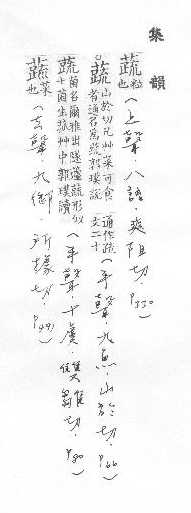 集韻
蔬粒也(上聲·八語·爽阻切·P330)
蔬山於切凡艸菜可食者通名爲蔬郭璞說通作疏文二十(平聲·九魚·山於切·P66)
蔬菌名爾雅出隧蘧蔬形似土菌生菰艸中郭璞讀(平聲·十虞·雙雛切·P80)
蔬菜也(去聲·九御·所據切·P491)